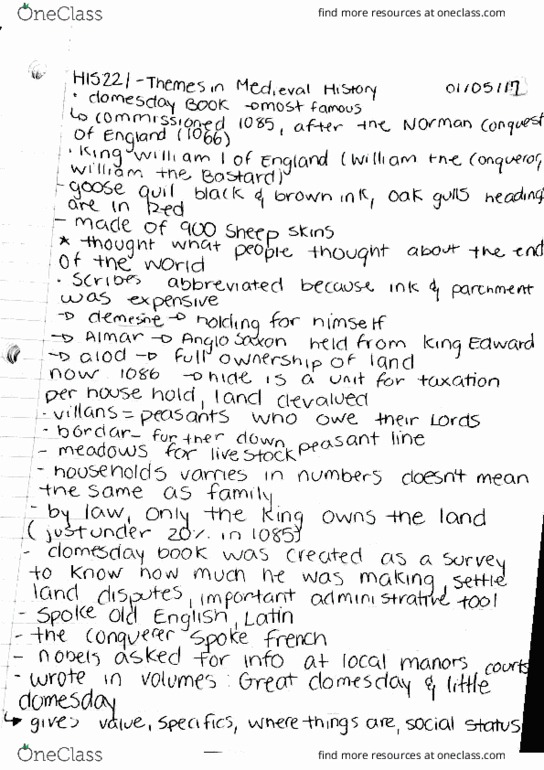 OneClass find more resources at oneclass.com
HIS221 - Themes in Medieval History 01/05/17
· domesday BOOK → most famous
↳ commissioned 1085, after the Norman Conquest
of England (1066)
· King William I of England (William the Conqueror,
William the Bastard)
- goose quil black & brown ink, oak gulls heading
are in Red
- made of 900 sheep skins
* thought what people thought about the end
of the world
· Scribes abbreviated because ink & parchment
was expensive
→ demesne → holding for himself
→ Almar → Anglo Saxon held from King Edward
→ alod → full ownership of land
now 1086 → hide is a unit for taxation
per house hold, land devalued
· villans = peasants who owe their Lords
- bordar - further down peasant line
- meadows for livestock
- households varries in numbers doesn't mean
the same as family
- by law, only the King owns the land
(just under 20% in 1085)
- domesday book was created as a survey
to know how much he was making, settle
land disputes, important administrative tool
- Spoke Old English, Latin
- the conquerer spoke french
- nobels asked for info at local manors courts
- wrote in volumes: Great domesday & little
domesday
↳ gives value, specifics, where things are, social status
OneClass find more resources at oneclass.com